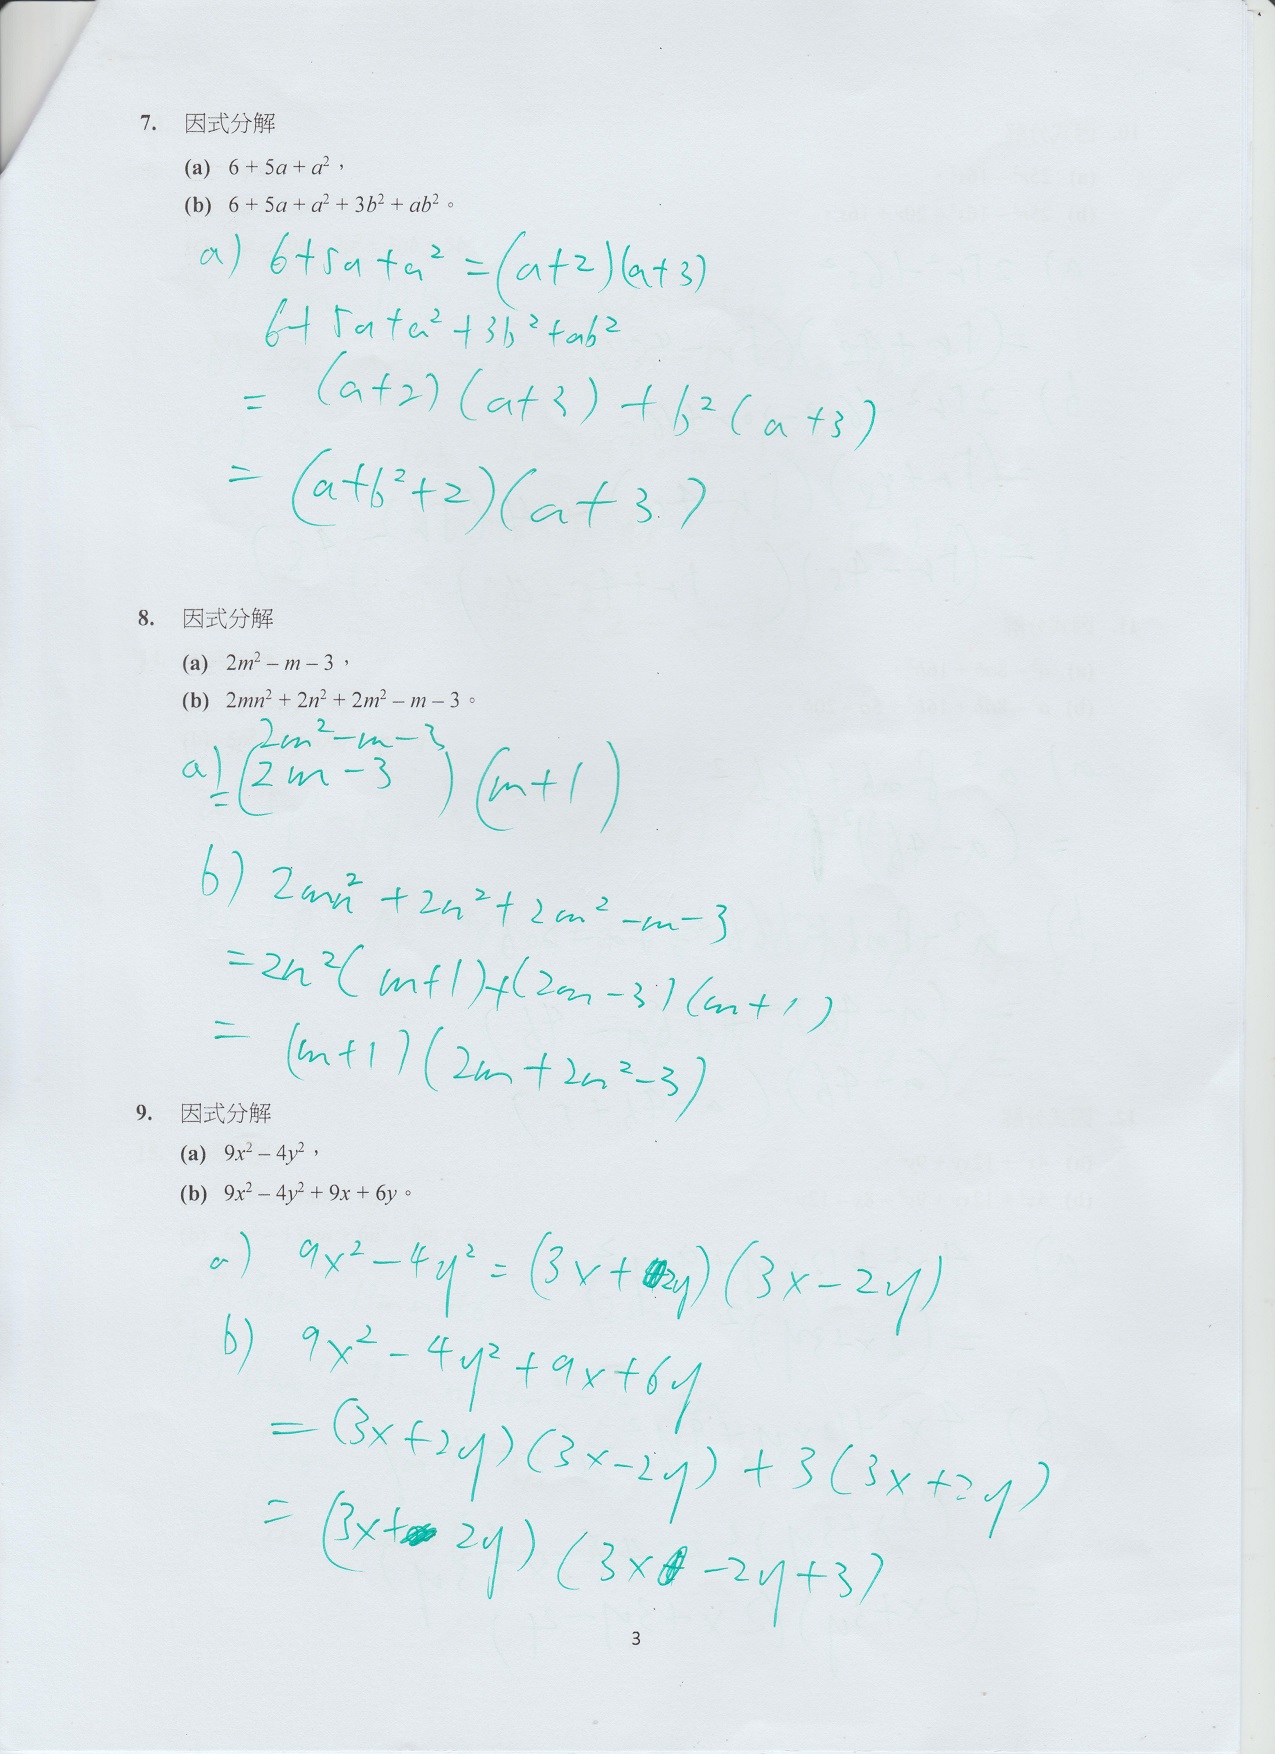 7. 因式分解
(a) 6 + 5a + a²，
(b) 6 + 5a + a² + 3b² + ab²。
a) 6+5a+a² =(a+2)(a+3)
6+5a+a²+3b²+ab²
= (a+2)(a+3)+b²(a+3)
= (a+b²+2)(a+3)
8. 因式分解
(a) 2m² – m – 3，
(b) 2mn² + 2n² + 2m² – m – 3。
2m²-m-3
a) =(2m-3)(m+1)
b) 2mn²+2n²+2m²-m-3
=2n²(m+1)+(2m-3)(m+1)
= (m+1)(2m+2n²-3)
9. 因式分解
(a) 9x² – 4y²，
(b) 9x² – 4y² + 9x + 6y。
a) 9x²-4y²=(3x+2y)(3x-2y)
b) 9x²-4y²+9x+6y
=(3x+2y)(3x-2y)+3(3x+2y)
= (3x+2y)(3x-2y+3)
3